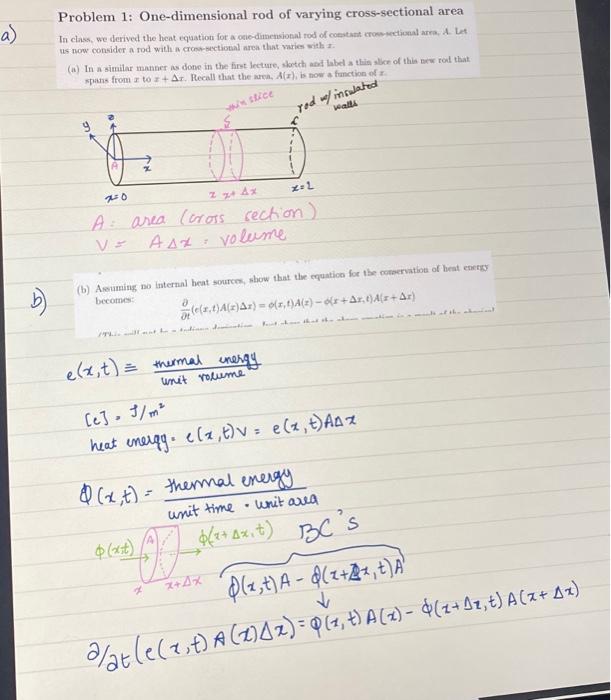 a)
Problem 1: One-dimensional rod of varying cross-sectional area
In class, we derived the heat equation for a one-dimensional rod of constant cross-sectional area, A. Let
us now consider a rod with a cross-sectional area that varies with x.
(a) In a similar manner as done in the first lecture, sketch and label a thin slice of this new rod that
spans from x to x + Δx. Recall that the area, A(x), is now a function of x.
thin slice
rod w/ insulated
walls
y
z
A
x
x=0
x x+Δx
x=L
A: area (cross section)
V = AΔx = volume
b)
(b) Assuming no internal heat sources, show that the equation for the conservation of heat energy
becomes:
∂/∂t (e(x,t)A(x)Δx) = ϕ(x,t)A(x) − ϕ(x + Δx,t)A(x + Δx)
e(x,t) ≡ thermal energy
unit volume
[e] = J/m²
heat energy = e(x,t)V = e(x,t)AΔx
Φ(x,t) = thermal energy
unit time · unit area
ϕ(x,t) A ϕ(x+Δx,t) BC's
x x+Δx
ϕ(x,t)A − ϕ(x+Δx,t)A
↓
∂/∂t (e(x,t) A(x)Δx) = ϕ(x,t) A(x) − ϕ(x+Δx,t) A(x+Δx)